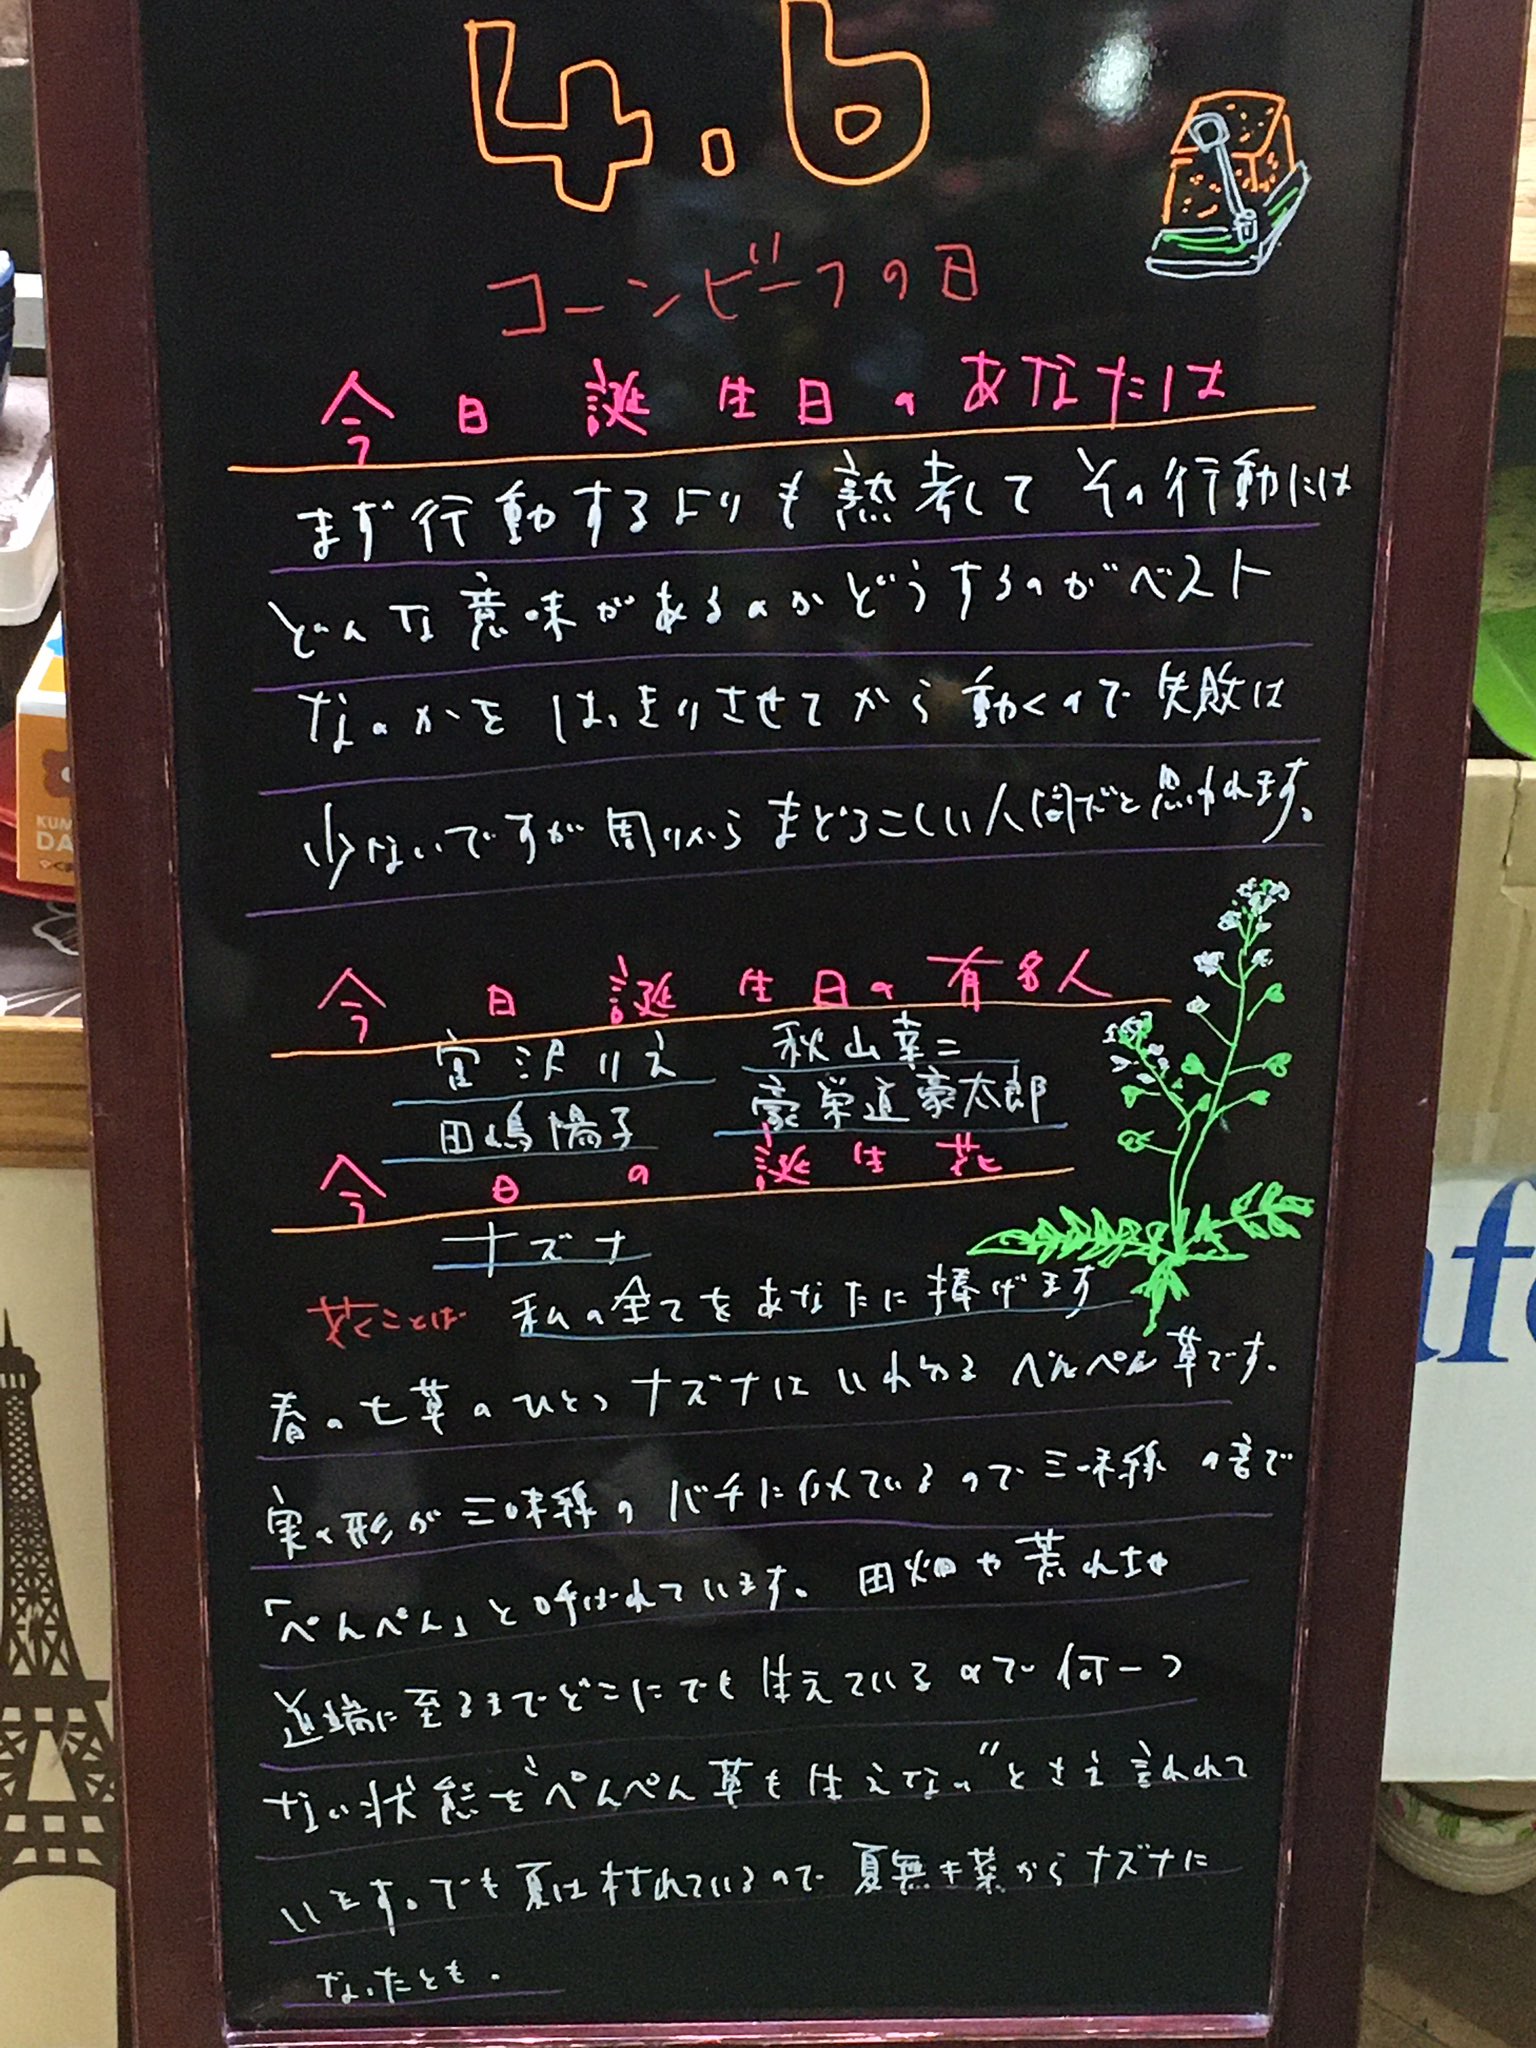 4.6
コーンビーフの日
今日誕生日のあなたは
まず行動するよりも熟考してその行動には
どんな意味があるのかどうするのがベスト
なのかをはっきりさせてから動くので失敗は
少ないですが周りからまどろこしい人間だと思われます。
今日誕生日の有名人
宮沢りえ 秋山幸二
田嶋陽子 豪栄道豪太郎
今日の誕生花
ナズナ
花ことば 私の全てをあなたに捧げます
春の七草のひとつナズナはいわゆるぺんぺん草です。
実の形が三味線のバチに似ているので三味線の音で
「ぺんぺん」と呼ばれています。田畑や荒れ地や
道端に至るまでどこにでも生えているので何一つ
ない状態を“ぺんぺん草も生えない”とさえ言われて
います。でも夏は枯れているので夏無き菜からナズナに
なったとも。
KUM
DA
afé